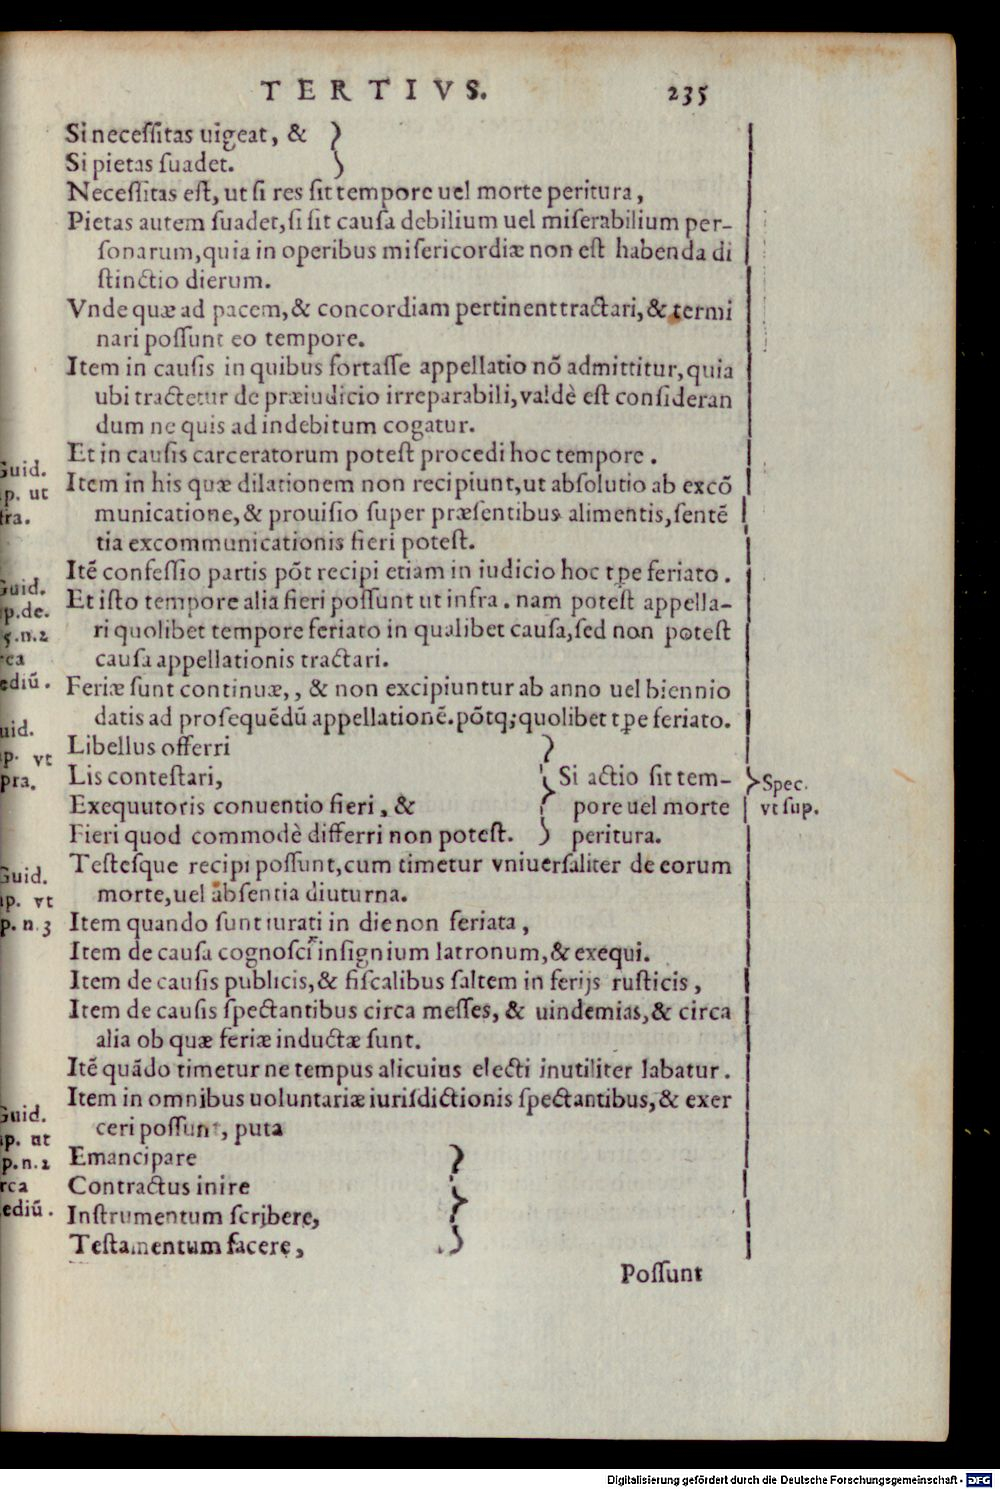 TERTIVS. 235
Si necessitas uigeat, & }
Si pietas suadet.
Necessitas est, ut si res sit tempore uel morte peritura,
Pietas autem suadet, si sit causa debilium uel miserabilium per-
sonarum, quia in operibus misericordiæ non est habenda di
stinctio dierum.
Vnde quæ ad pacem, & concordiam pertinent tractari, & termi
nari possunt eo tempore.
Item in causis in quibus fortasse appellatio nõ admittitur, quia
ubi tractetur de præiudicio irreparabili, valdè est consideran
dum ne quis ad indebitum cogatur.
Et in causis carceratorum potest procedi hoc tempore.
Guid.
Item in his quæ dilationem non recipiunt, ut absolutio ab excõ
p. ut
municatione, & prouisio super præsentibus alimentis, sentẽ
fra.
tia excommunicationis fieri potest.
Itẽ confessio partis põt recipi etiam in iudicio hoc tpe feriato.
Guid.
Et isto tempore alia fieri possunt ut infra. nam potest appella-
p. de.
ri quolibet tempore feriato in qualibet causa, sed non potest
5. n. 2
causa appellationis tractari.
rca
Feriæ sunt continuæ, , & non excipiuntur ab anno uel biennio
ediũ.
datis ad prosequẽdũ appellationẽ. põtq; quolibet tpe feriato.
uid.
Libellus offerri
p. vt
Lis contestari, } Si actio sit tem-
pra.
Spec.
Exequutoris conuentio fieri, & pore uel morte
vt sup.
Fieri quod commodè differri non potest. peritura.
Testesque recipi possunt, cum timetur vniuersaliter de eorum
Guid.
morte, uel absentia diuturna.
p. vt
Item quando sunt iurati in die non feriata,
p. n. 3
Item de causa cognosci insignium latronum, & exequi.
Item de causis publicis, & fiscalibus saltem in ferijs rusticis,
Item de causis spectantibus circa messes, & uindemias, & circa
alia ob quæ feriæ inductæ sunt.
Itẽ quãdo timetur ne tempus alicuius electi inutiliter labatur.
Item in omnibus uoluntariæ iurisdictionis spectantibus, & exer
Guid.
ceri possunt, puta
p. ut
Emancipare
p. n. 2
Contractus inire }
rca
Instrumentum scribere,
ediũ.
Testamentum facere,
Possunt
Digitalisierung gefördert durch die Deutsche Forschungsgemeinschaft - DFG